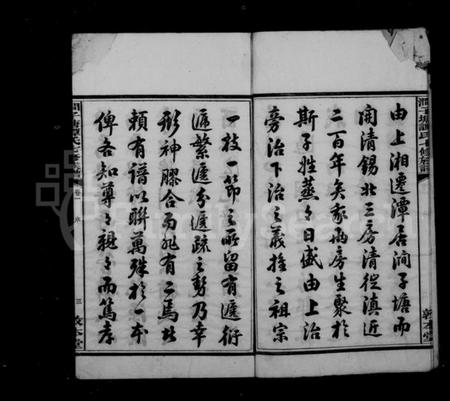 由上湘遷潭居澗子塘而
開清錫北三房清從滇近
二百年矣豕兩房生聚於
斯子姓蕃々日盛由上治
旁治下治之義推之祖宗
一枝一節之所留有遞衍
遞繁遞分遞疏之勢乃幸
形神膠合而非有二焉此
賴有譜以聯萬殊於一本
俾各知尊々親々而篤孝
三
敦本堂